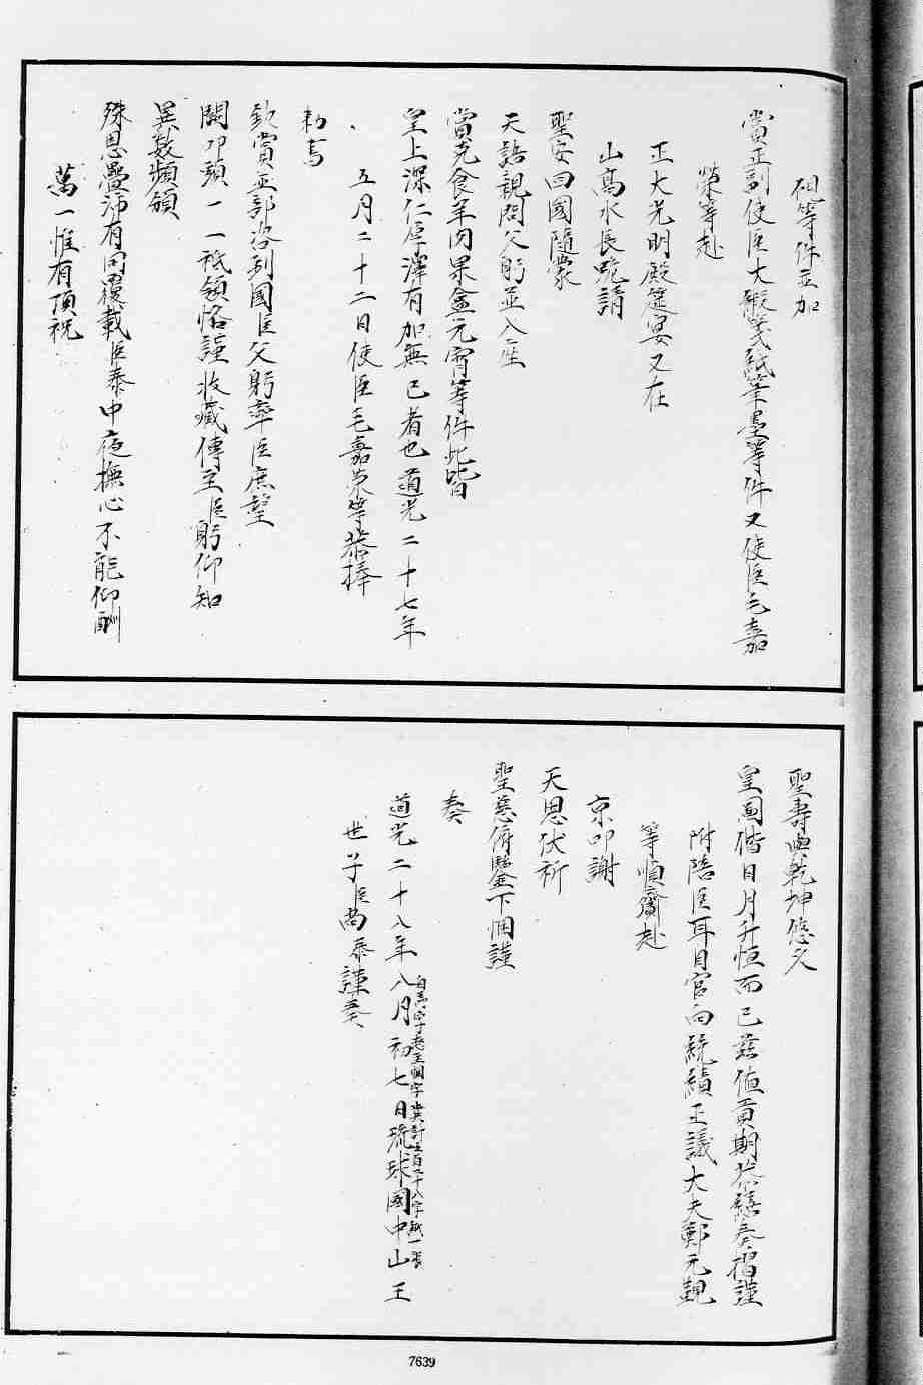 硯等件並加
賞正副使臣大緞箋紙筆墨等件又使臣毛嘉
榮等赴
正大光明殿筵宴又在
山高水長跪請
聖安回國隨蒙
天語親問父躬並入座
賞克食羊肉果盒元宵等件此皆
皇上深仁厚澤有加無已者也道光二十七年
五月二十二日使臣毛嘉榮等恭捧
勅書
欽賞並部咨到國臣父躬率臣庶望
闕叩頭一一祗領恪謹收藏傳至臣躬仰知
異數頻頒
殊恩疊沛有同覆載臣泰中夜撫心不能仰酬
萬一惟有頂祝
聖壽與乾坤悠久
皇圖偕日月升恒而已茲值貢期恭繕奏摺謹
附陪臣耳目官向統績正議大夫鄭元覲
等順齎赴
京叩謝
天恩伏祈
聖慈俯鑒下悃謹
奏
自為字起至悃字共計百八十八字紙一張
道光二十八年八月初七日琉球國中山王
世子臣尚泰謹奏
7639